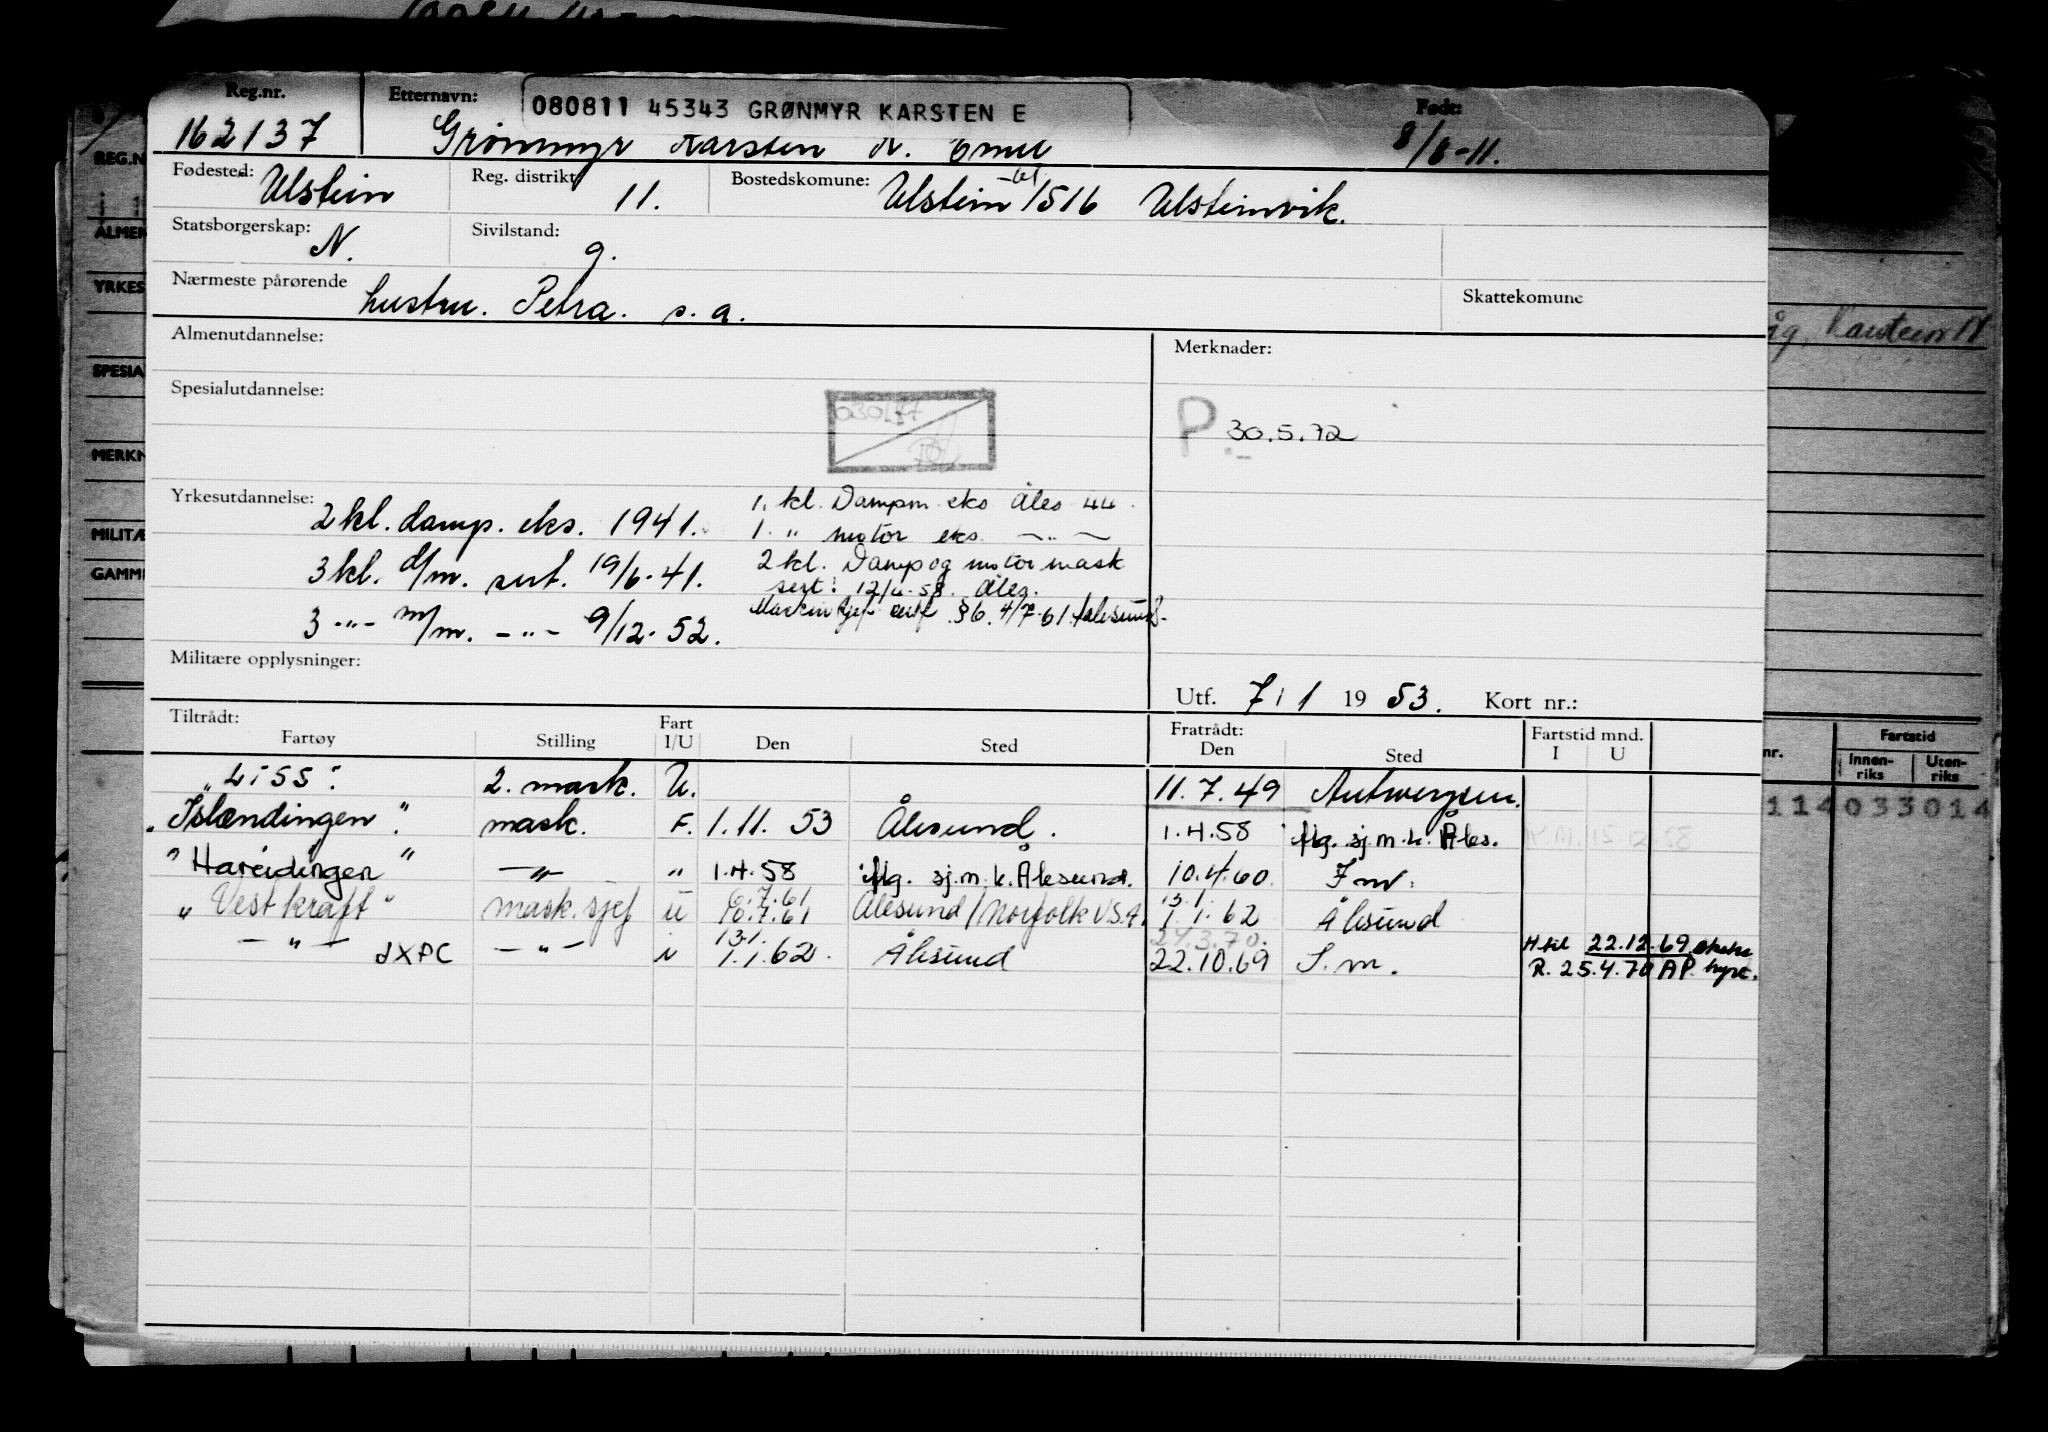 Reg.nr. Etternavn: 080811 45343 GRØNMYR KARSTEN E Født:
162137 Grönmyr Karsten K. Emil 8/8-11.
Fødested: Ulstein Reg. distrikt 11. Bostedskomune: Ulstein 1516 Ulsteinvik.
Statsborgerskap: N. Sivilstand: g.
Nærmeste pårørende hustru. Petra. s. a. Skattekomune
Almenutdannelse: Merknader:
Spesialutdannelse:
P 30.5.72
Yrkesutdannelse: 2 kl. damp. eks. 1941. 1. kl. Dampm. eks Åles 44.
1. " motor eks. — " —
3 kl. d/m. sert. 19/6-41. 2 kl. Damp og motor mask
sert: 12/4-58. Åles.
3 -"- m/m. -"- 9/12-52. Maskinsjef sert §6. 4/7-61 Aalesund.
Militære opplysninger:
Utf. 7/1 1953. Kort nr.:
Tiltrådt: Fart Fratrådt: Fartstid mnd.
Fartøy Stilling I/U Den Sted Den Sted I U
"Liss". 2. mask. U. 11.7.49 Antwerpen.
"Islendingen". mask. F. 1.11.53 Ålesund. 1.4.58 flg. sj.m.k. Åles.
"Hareidingen" -"- " 1.4.58 flg. sj.m.k. Ålesund. 10.4.60 F.m.
6.7.61 13.1
"Vestkraft" mask.sjef u 10.7.61 Ålesund/Norfolk U.S.A. 1.1.62 Ålesund
13.1. 24.3.70. H til 22.12.69
-"- JXPC -"- u 1.1.62. Ålesund 22.10.69 S.m. R. 25.4.70 AP hyre.
REG.N
ALMEN
YRKES
SPESIA
MERKN
MILITÆ
GAMM
nr. Fartstid
Innen-riks Uten-riks
114033014